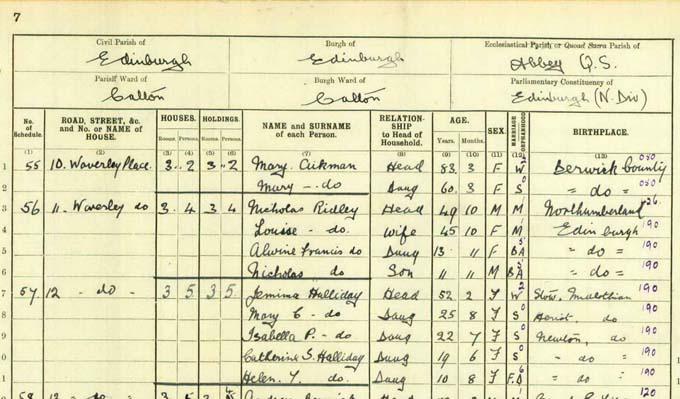 7
Civil Parish of Burgh of Ecclesiastical Parish or Quoad Sacra Parish of
Edinburgh Edinburgh Abbey Q.S.
Parish Ward of Burgh Ward of Parliamentary Constituency of
Calton Calton Edinburgh (N. Div)
No. of Schedule. ROAD, STREET, &c. and No. or NAME of HOUSE. HOUSES. Rooms Persons HOLDINGS. Rooms Persons NAME and SURNAME of each Person. RELATION-SHIP to Head of Household. AGE. Years. Months. SEX. MARRIAGE or ORPHANHOOD BIRTHPLACE.
(1) (2) (3) (4) (5) (6) (7) (8) (9) (10) (11) (12) (13)
1 55 10. Waverley Place. 3 2 3 2 Mary Aikman Head 83 3 F W Berwick County 050
2 Mary - do Daug 60 8 F S " do " 050
3 56 11. Waverley do 3 4 3 4 Nicholas Ridley Head 49 10 M M Northumberland
4 Louise - do. Wife 45 10 F M Edinburgh 190
5 Francis do Daug 13 11 F " do = 190
6 Nicholas do Son 11 11 M " do = 190
7 57 12 - do - 3 5 3 5 Jemima Halliday Head 52 2 F W Stow, Midlothian 190
8 Mary C - do Daug 25 8 F S Heriot, do 190
9 Isabella P. - do Daug 22 7 F S Newton, do 190
0 Catherine S. Halliday Daug 19 6 F S " do " 190
1 Helen. Y. do. Daug 10 8 F. " do " 190
58 13 3 5 3 120